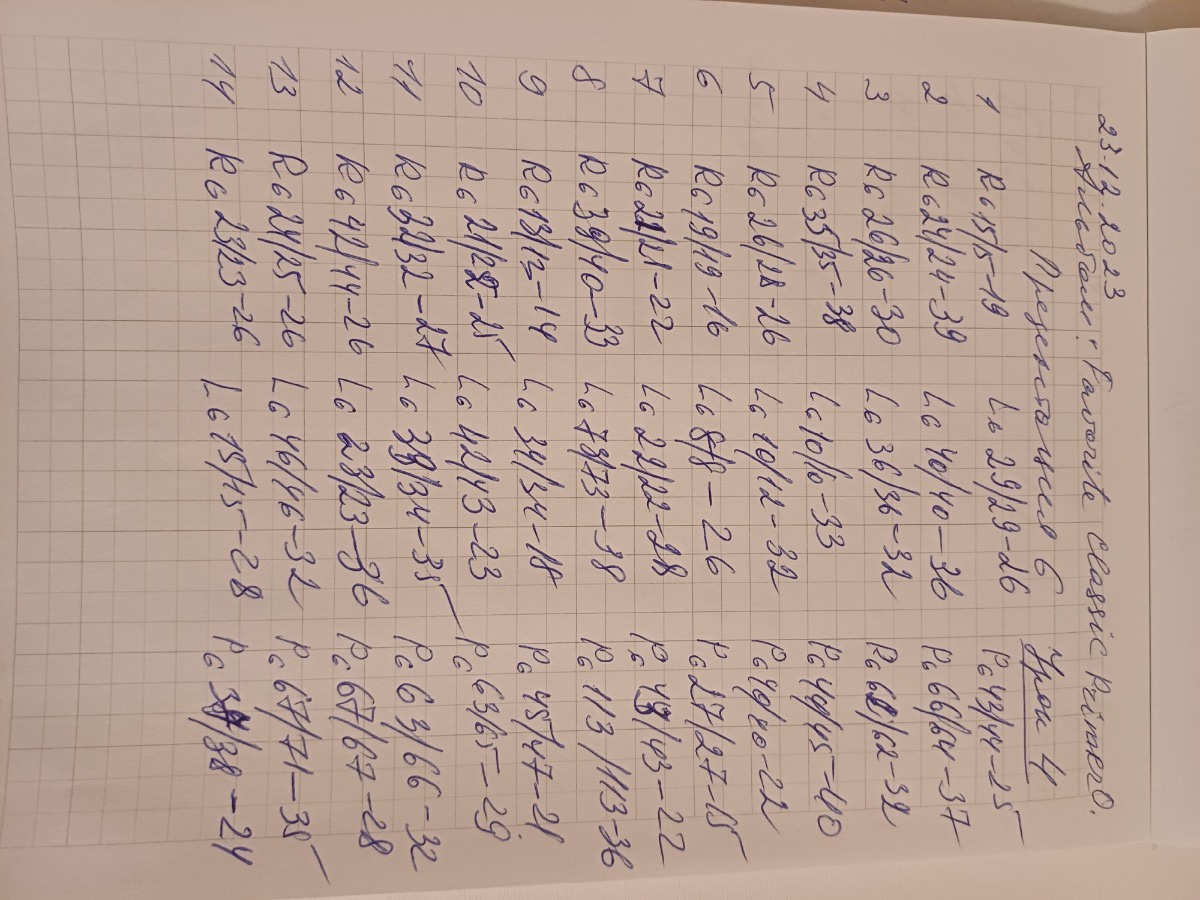 23.12.2023
Альбом: Favorite classic Primero.
Презентация 6 Урок 4
1 Rc 15/15-19 Lc 29/29-26 Pc 43/44-25
2 Rc 24/24-39 Lc 40/40-36 Pc 66/64-37
3 Rc 26/26-30 Lc 36/36-32 Pc 62/62-32
4 Rc 35/35-38 Lc 10/10-33 Pc 49/45-40
5 Rc 26/28-26 Lc 10/12-32 Pc 40/40-22
6 Rc 19/19-16 Lc 8/8-26 Pc 27/27-15
7 Rc 21/21-22 Lc 22/22-28 Pc 43/43-22
8 Rc 39/40-33 Lc 73/73-38 Pc 113/113-36
9 Rc 13/12-14 Lc 34/34-18 Pc 45/47-21
10 Rc 21/22-25 Lc 42/43-23 Pc 63/65-29
11 Rc 32/32-27 Lc 33/34-35 Pc 63/66-32
12 Rc 42/44-26 Lc 23/23-36 Pc 67/67-28
13 Rc 24/25-26 Lc 46/46-32 Pc 67/71-35
14 Rc 23/23-26 Lc 15/15-28 Pc /38-24